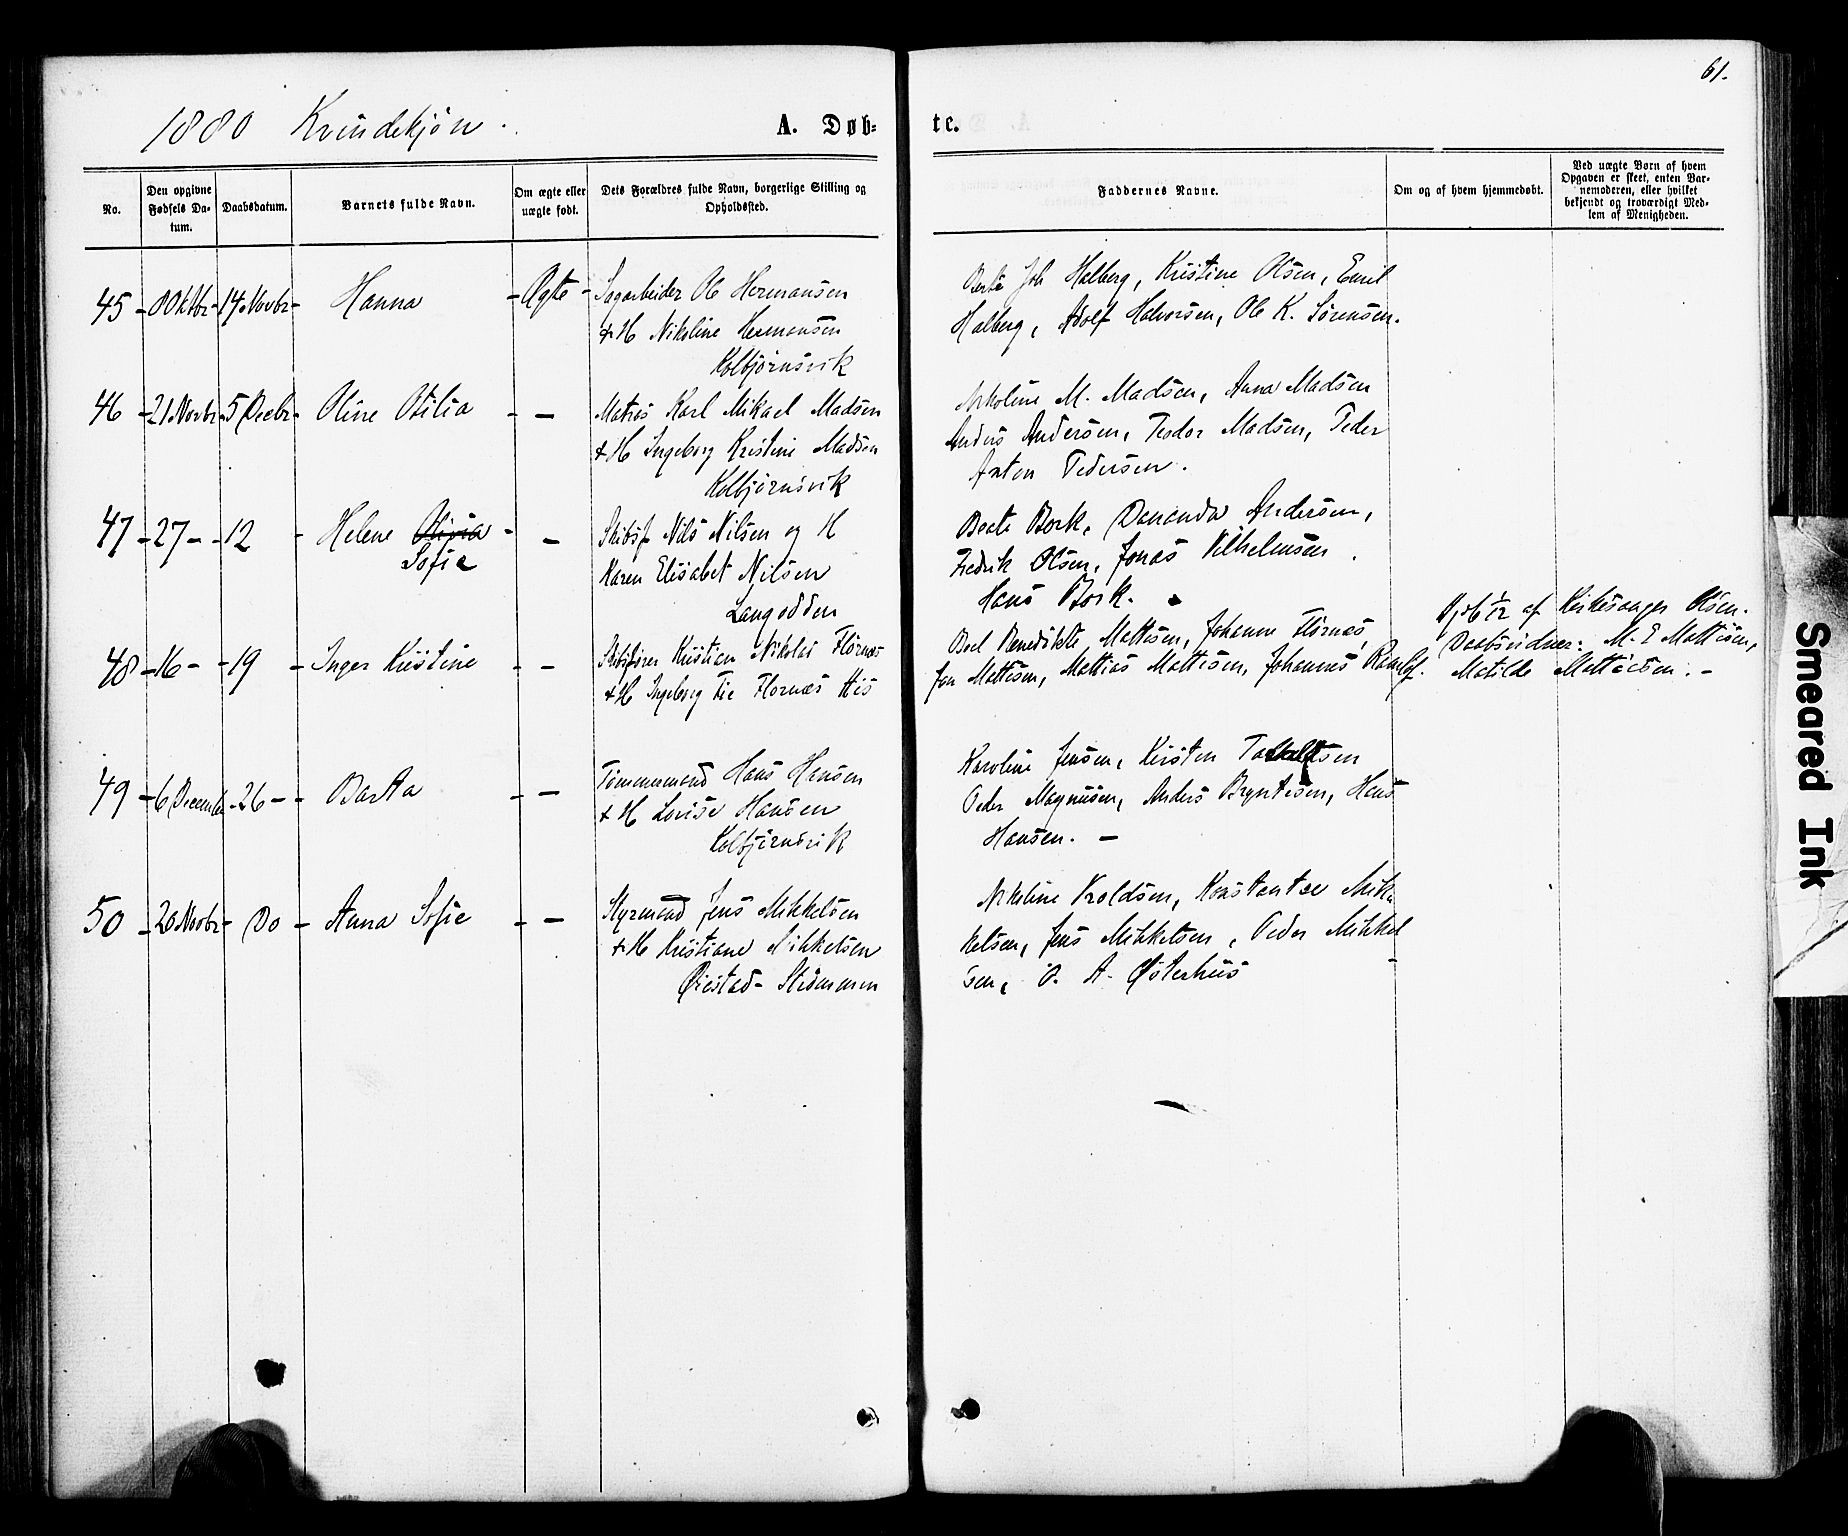 61.
1880 Kvindekjøn.
A. Døb-
te.
No.
Den opgivne Fødsels Da-tum.
Daabsdatum.
Barnets fulde Navn.
Om ægte eller uægte født.
Dets Forældres fulde Navn, borgerlige Stilling og Opholdssted.
Faddernes Navne.
Om og af hvem hjemmedøbt.
Ved uægte Børn af hvem Opgaven er skeet, enten Bar-nemoderen, eller hvilket bekjendt og troværdigt Med-lem af Menigheden.
45 - 8 Oktbr - 14 Novbr - Hanna - Ægte - Sagarbeider Ole Hermansen
& H Nikoline Hermansen
Kolbjørnsvik
Halberg, Kristine Olsen, Emil
Halberg, Adolf Halvorsen, Ole K. Sørensen.
46 - 21 Novbr - 5 Decbr - Oline Otilia - - Matros Karl Mikael Madsen
& H Ingeborg Kristine Madsen
Kolbjørnsvik
Nikoline M. Madsen, Anna Madsen
Anders Andersen, Teodor Madsen, Peder
Anton Pedersen.
47 - 27 - - 12 - Helene Olivia - - Skibsf Nils Nilsen og H
Sofie
Karen Elisabet Nilsen
Langodden
Beate Bork, Andersen,
Fredrik Olsen, Jonas Vilhelmsen.
Hans Bork.
48 - 16 - - 19 - Inger Kristine - - Skibsfører Kristian Nikolai Flørnæs
& H Ingeborg Fie Flørnæs His
Benedikte Mattisen, Johanne Flørnæs,
Mattisen, Mattias Mattisen, Johannes
Hj db 1/12 af Kirkesanger Olsen.
Daabsvidner: M. E Mattisen,
Matilde Mattisen. -
49 - 6 December - 26 - - Berta - - Tømmermand Hans Hansen
& H Lovise Hansen
Kolbjørnsvik
Karoline Jensen, Kirsten
Peder Magnusen, Anders Bryntesen, Hans
Hansen. -
50 - 20 Novbr - Do - Anna Sofie - - Styrmand Jens Mikkelsen
& H Kristiane Mikkelsen
Øiestad - Strømmen
Nikoline Troldsen, Konstantse Mik-
kelsen, Jens Mikkelsen, Peder Mikkel-
sen, O. A. Østerhus
Smeared Ink